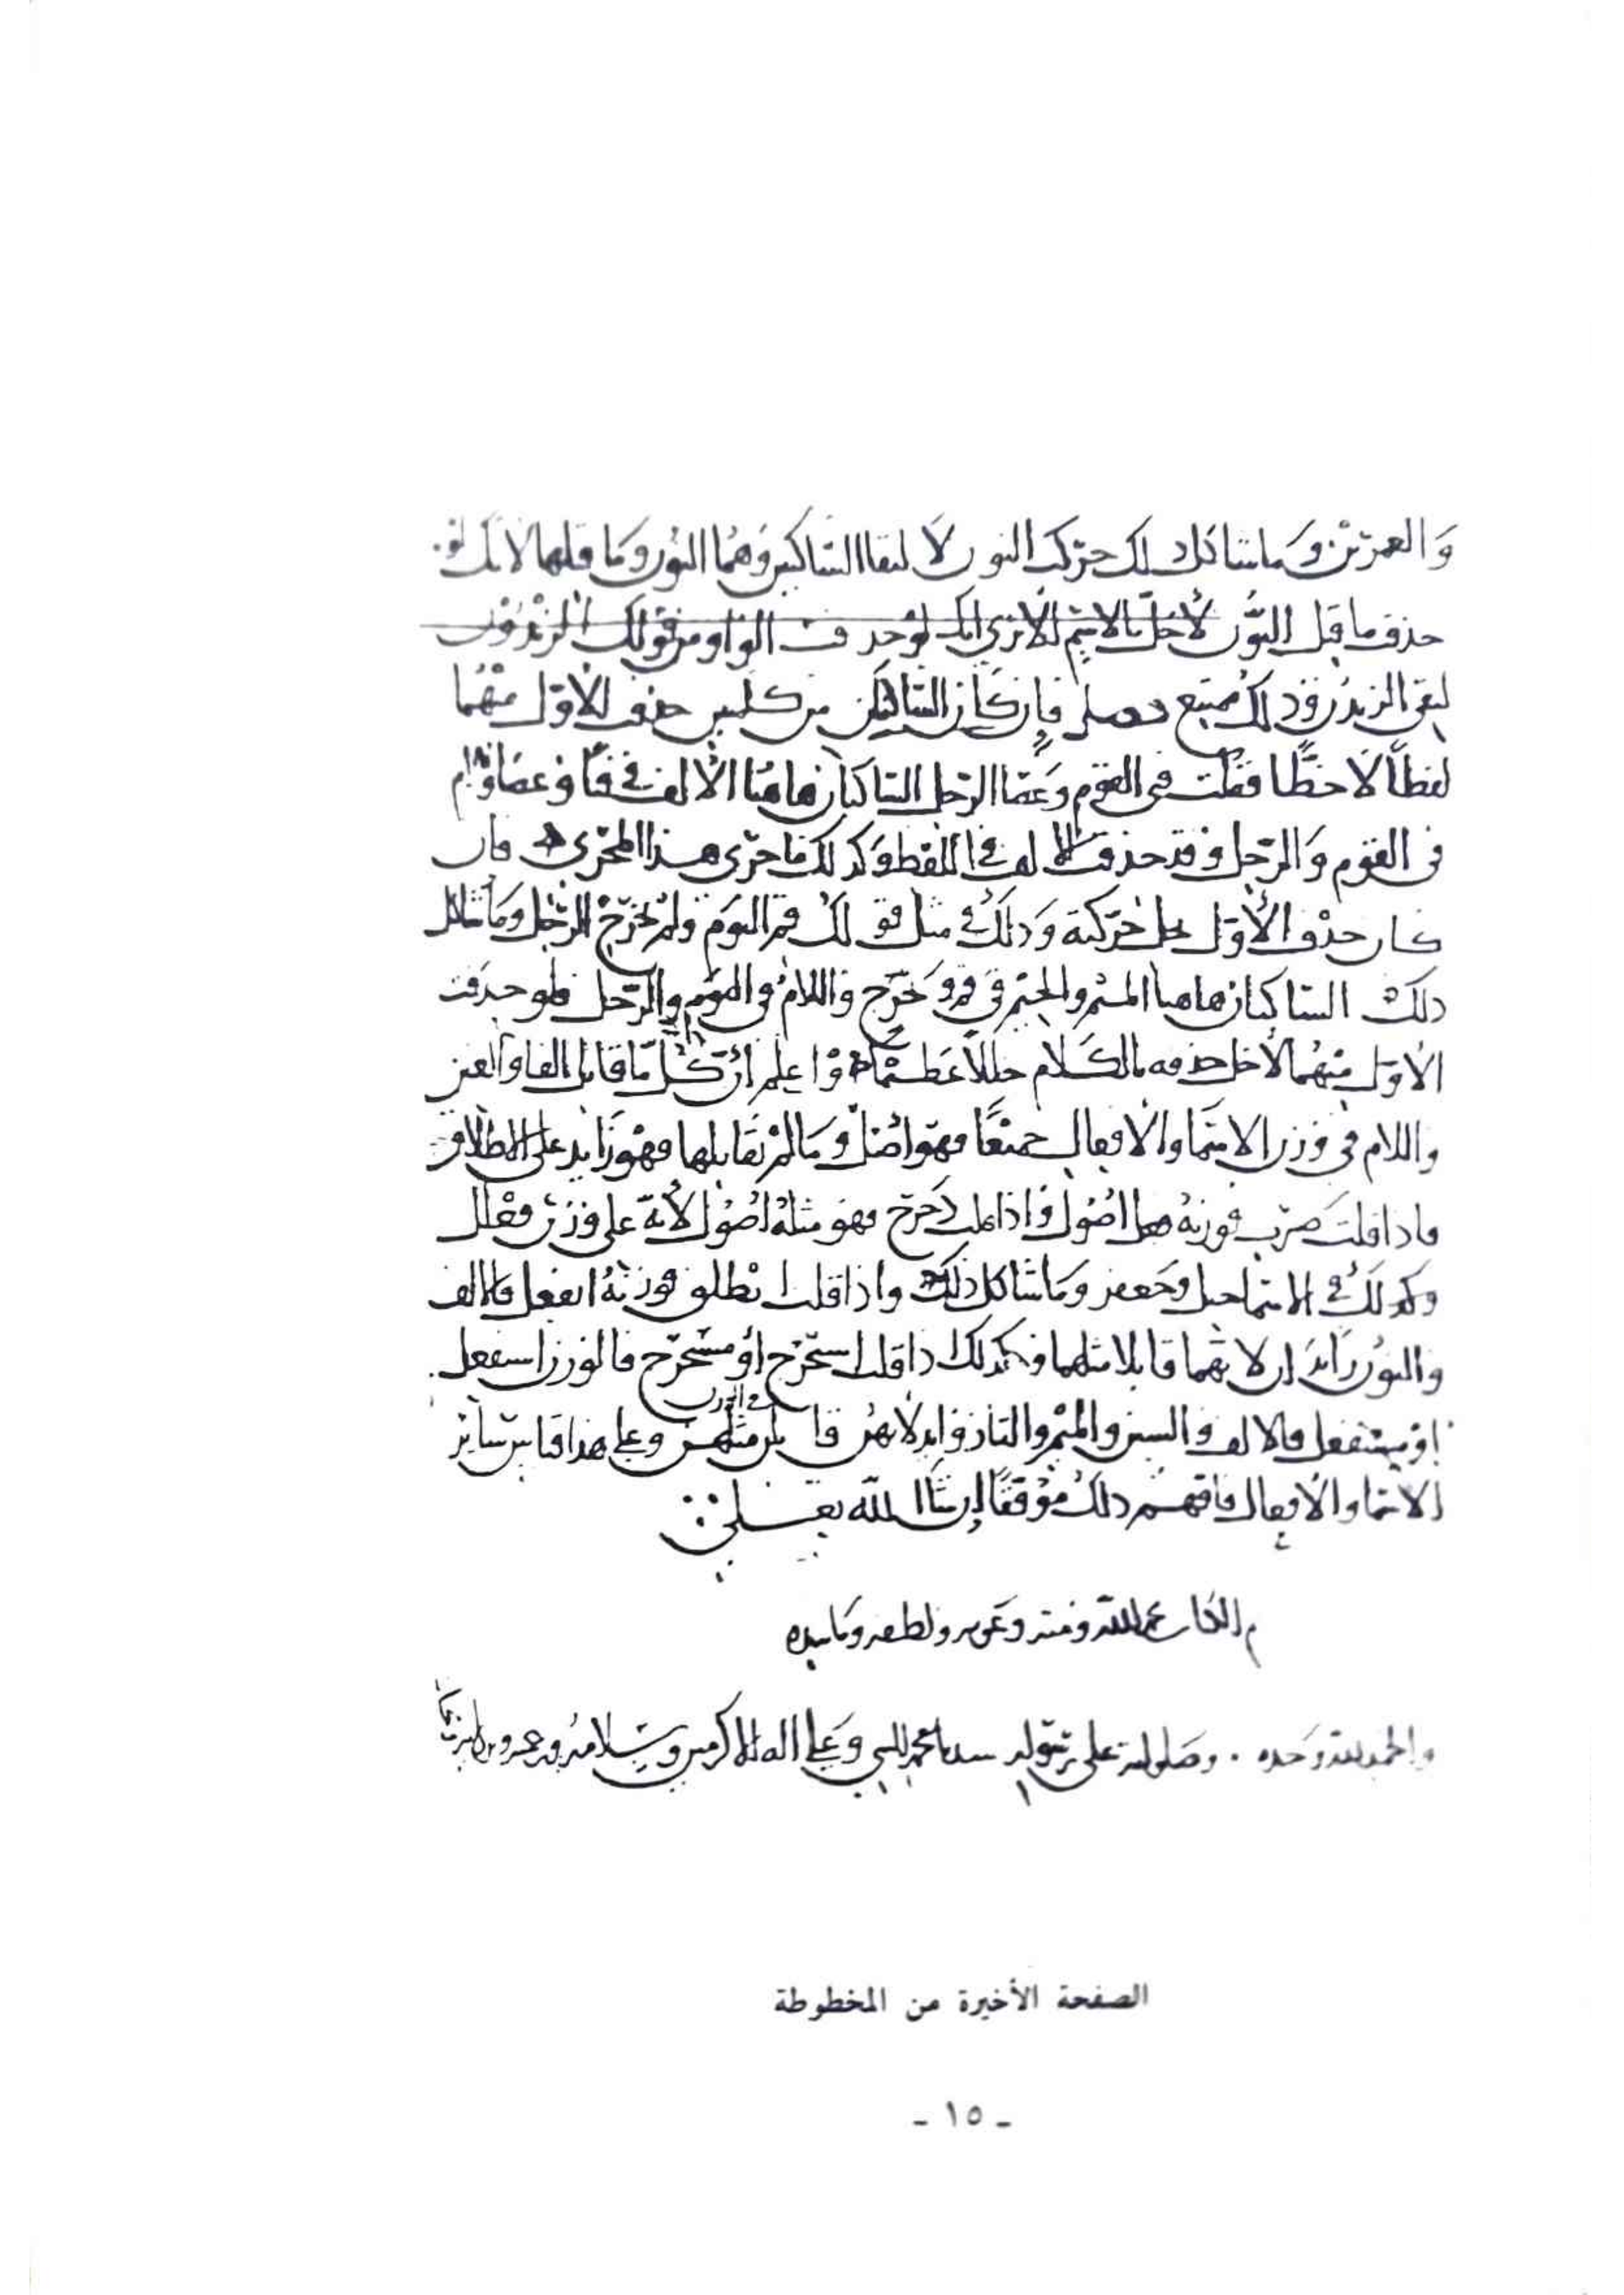 والعمرين وما شاكل ذلك حركت النون لالتقا الساكنين وهما النون وما قبلها لانك لو
حذفت ما قبل النون لأخل بالاسم ألا ترى انك لو حذفت الواو من قولك الزيدون
لبقي الزيدن وذلك ممتنع فصل فإن كان الساكنان من كلمتين حذفت الأول منهما
لفظًا لا خطًّا فقلت فتى القوم وعصا الرجل الساكنان هاهنا الألف في فتا وعصا ولام
في القوم والرجل وقد حذفت الالف في اللفظ وكذلك ما جرى هذا المجرى فان
كان حذف الأول يخل حركته وذلك في مثل قولك قم اليوم ولم يخرج الرجل وما شاكل
ذلك الساكنان هاهنا الميم والجيم في قم ويخرج واللام في اليوم والرجل فلو حذفت
الأول منهما لأخل حذفه بالكلام خللاً عظيمًا واعلم أن كل ما قابل الفا والعين
واللام في وزن الاسما والافعال جميعًا فهو أصل وما لم يقابلها فهو زايد على الاطلاق
فاذا قلت ضرب فوزنه فعل أصول واذا قلت دحرج فهو مثله أصول لأنه على وزن فعلل
وكذلك في الاسما وجعفر وما شاكل ذلك واذا قلت انطلق فوزنه انفعل فالالف
والنون زائدان لانهما قابلا مثلهما وكذلك اذا قلت استخرج أو مستخرج فالوزن استفعل
أو مستفعل فالالف والسين والميم والتا زوايد لانهن قابلن مثلهن في الوزن وعلى هذا قياس سائر
الاسما والافعال فافهم ذلك موفقًا إن شا الله تعلى
م الكتاب بحمد الله ومنه وعونه ولطفه وتاييده
والحمد لله وحده . وصلى الله على رسوله سيدنا محمد النبي وعلى اله الاكرمين وسلامه
الصفحة الأخيرة من المخطوطة
- ١٥ -